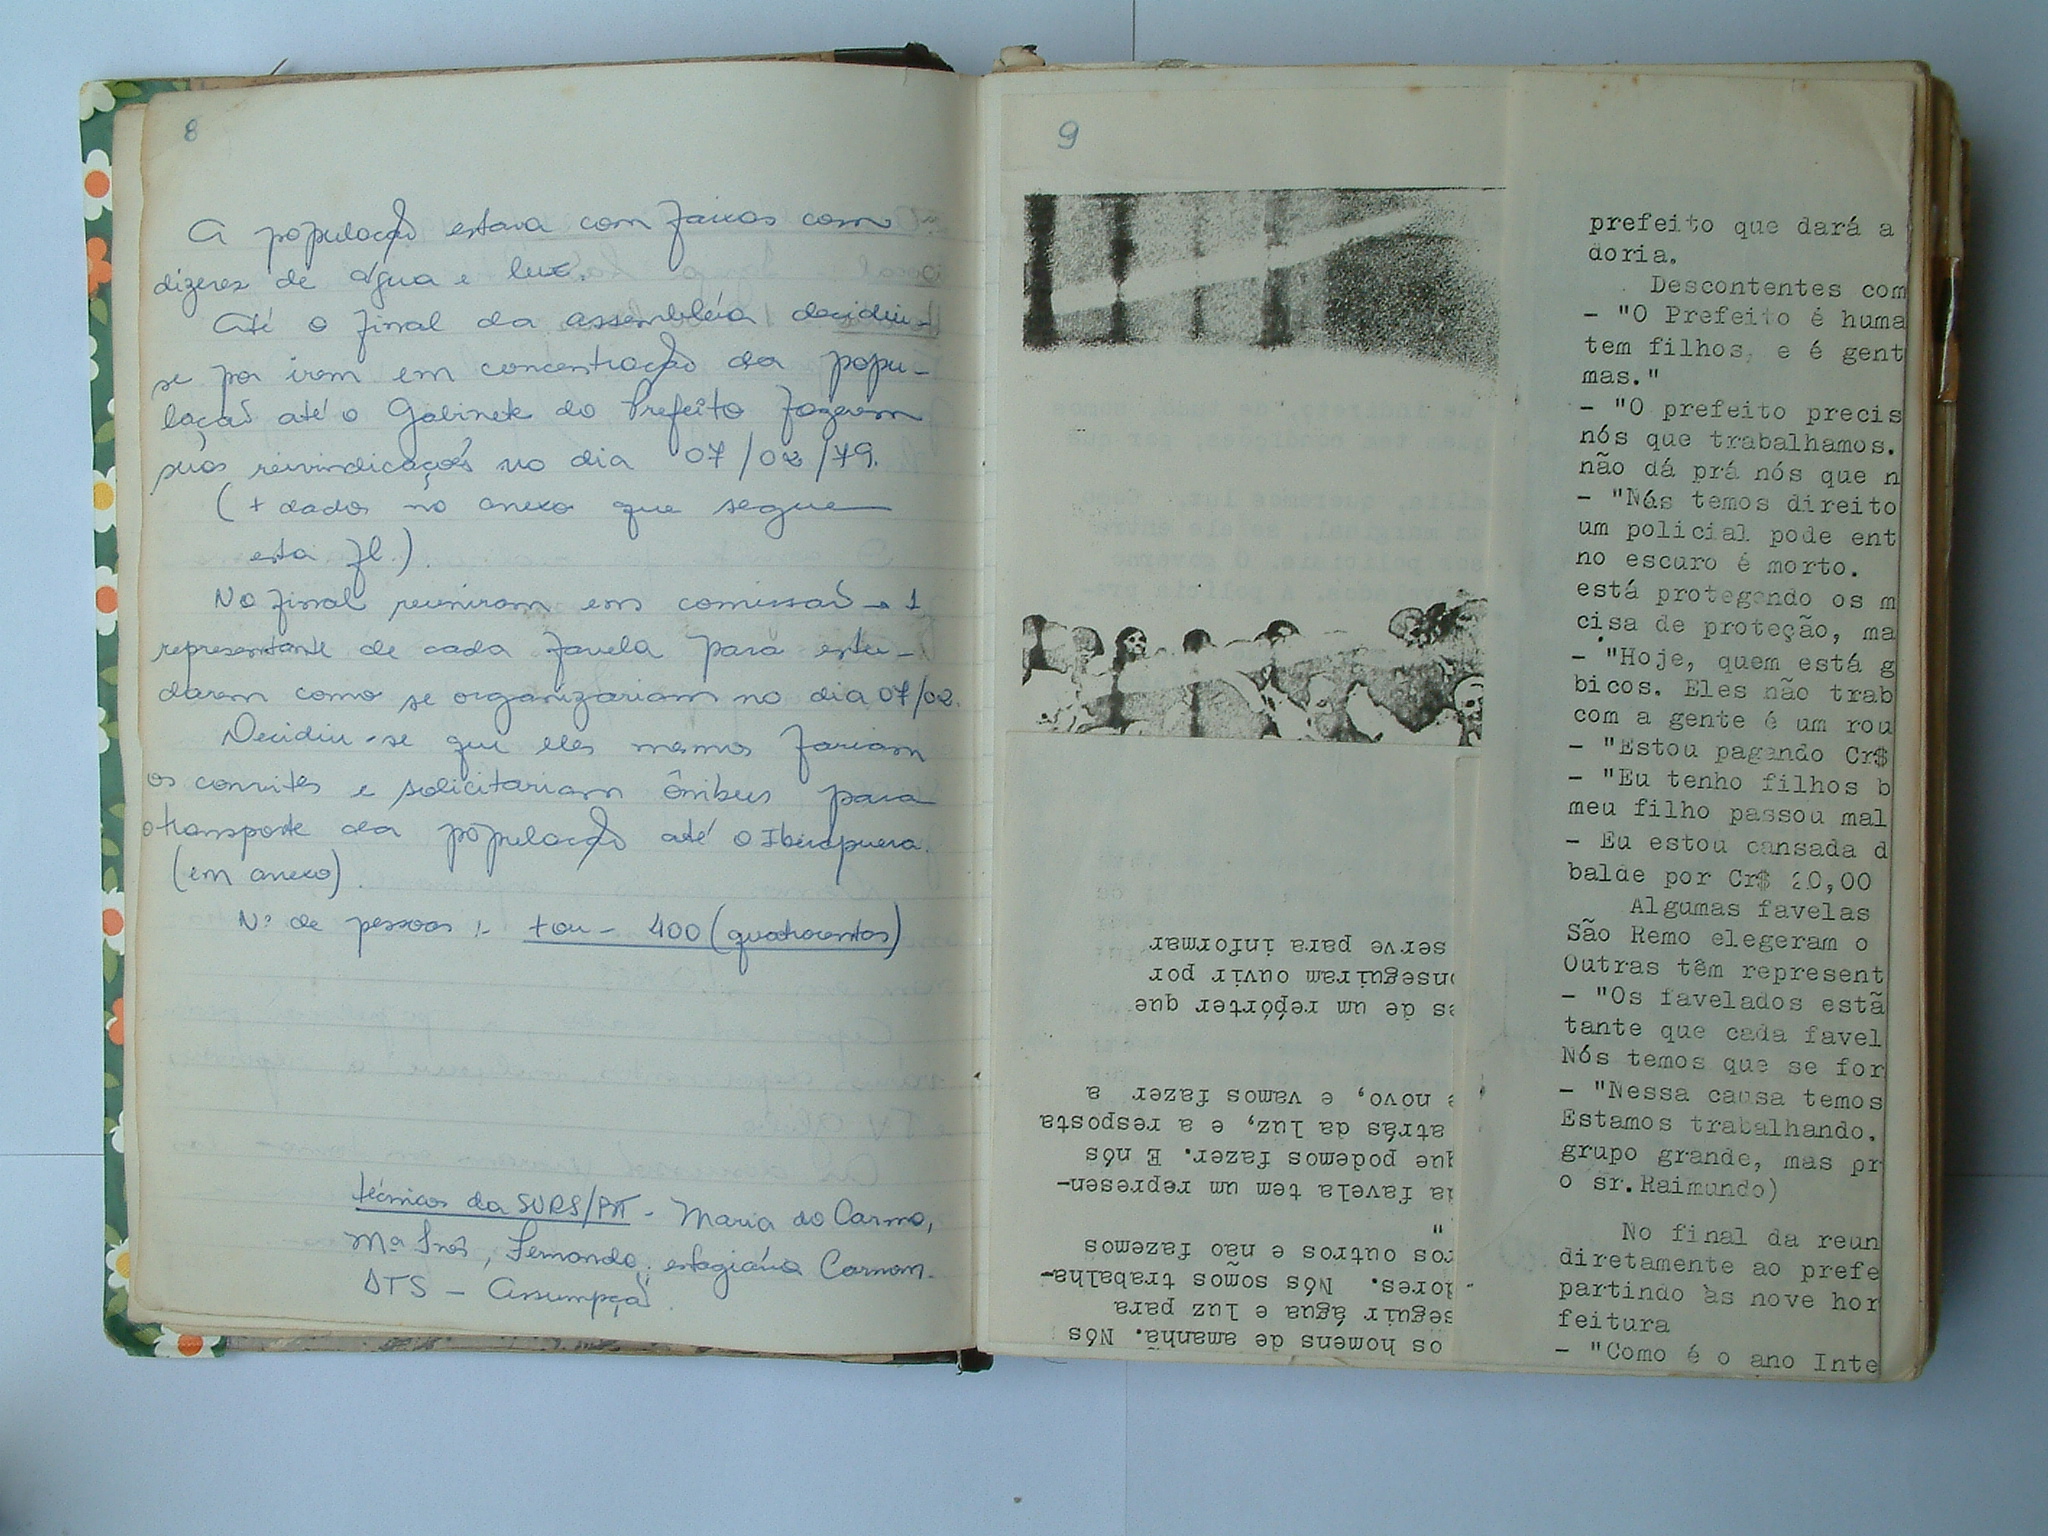 8
A população estava com faixas com
dizeres de água e luz.
Até o final da assembléia decidiu-
se por irem em concentração da popu-
lação até o Gabinete do Prefeito fazerem
suas reivindicações no dia 07/02/79.
(+ dados no anexo que segue
esta fl.)
No final reuniram em comissão → 1
representante de cada favela para estu-
darem como se organizariam no dia 07/02.
Decidiu-se que eles mesmos fariam
os convites e solicitariam ônibus para
o transporte da população até o Ibirapuera.
(em anexo).
Nº de pessoas :- + ou - 400 (quatrocentos)
técnicos da SURS/PT - Maria do Carmo,
Mª Inês, Fernando, estagiária Carmem.
DTS - Assumpção.
9
serve para informar
nseguiram ouvir por
es de um repórter que
e novo, e vamos fazer a
atrás da luz, e a resposta
que podemos fazer. E nós
da favela tem um represen-
"
ros outros e não fazemos
dores. Nós somos trabalha-
seguir água e luz para
os homens de amanhã. Nós
prefeito que dará a
doria.
Descontentes com
- "O Prefeito é huma
tem filhos, e é gent
mas."
- "O prefeito precis
nós que trabalhamos.
não dá prá nós que n
- "Nós temos direito
um policial pode ent
no escuro é morto.
está protegendo os m
cisa de proteção, ma
- "Hoje, quem está g
bicos. Eles não trab
com a gente é um rou
- "Estou pagando Cr$
- "Eu tenho filhos b
meu filho passou mal
- Eu estou cansada d
balde por Cr$ 20,00
Algumas favelas
São Remo elegeram o
Outras têm represent
- "Os favelados estã
tante que cada favel
Nós temos que se for
- "Nessa causa temos
Estamos trabalhando.
grupo grande, mas pr
o sr.Raimundo)
No final da reun
diretamente ao prefe
partindo às nove hor
feitura
- "Como é o ano Inte